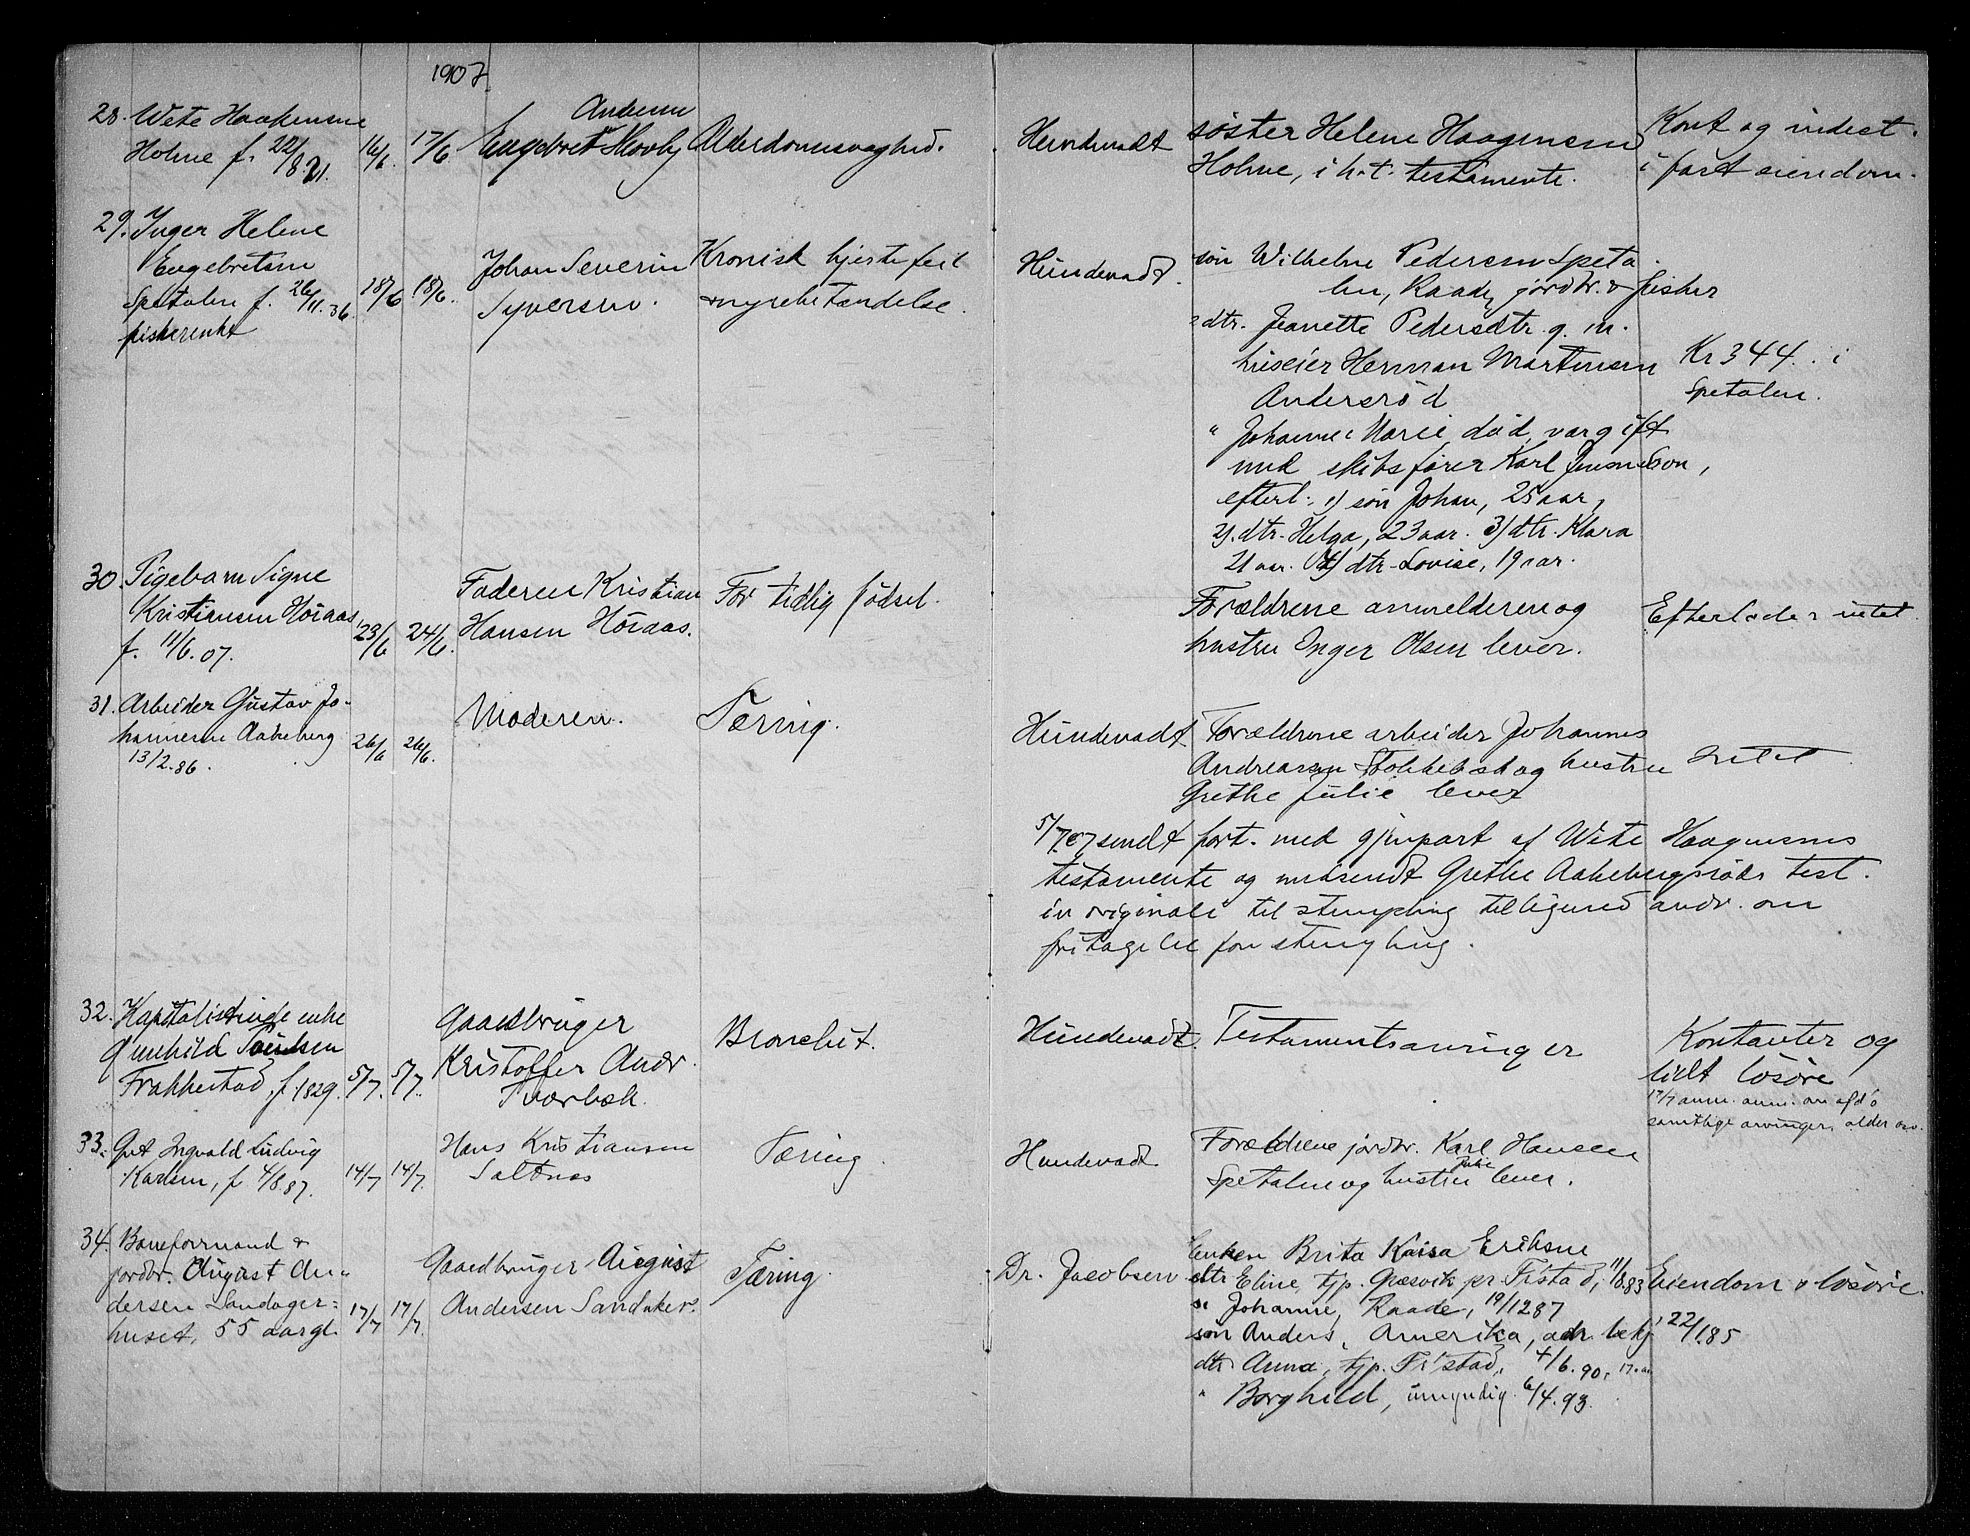 1907.
28. Wete Haakensen
Holme f. 22/8.21. 16/6. 17/6 Engebret Andersen Hovby Alderdomssvaghed. Hundevadt søster Helene Haagensen Kont og indest.
Holme, i h.t. testamente. i fast eiendom.
29. Inger Helene
Engebretsen
Spetalen f. 26/11.36. 18/6 18/6. Johan Severin Kronisk hjertefeil Hundevadt. søn Wilhelm Pedersen Speta-
fiskerenke Syversen. & nyrebetændelse. len, Raade, jordbr. & fisker
dtr. Jeanette Pedersdtr. g. m.
huseier Herman Martinsen Kr 344. i
Andersrød Spetalen.
" Johanne Marie død, var gift
med skibsfører Karl Son,
efterl: 1) søn Johan, 25 aar,
2). dtr. Helga, 23 aar. 3) dtr. Klara
21 aar. 4) dtr. Lovise, 19 aar.
30. Pigebarn Signe
Kristiansen Höiaas 23/6 24/6. Faderen Kristian For tidlig födsel. Forældrene anmelderen og Efterlader intet.
f. 11/6.07. Hansen Höiaas. hustru Inger Olsen lever.
31. Arbeider Gustav Jo-
hannesen Aakeberg 26/6 26/6. Moderen. Tæring. Hundevadt. Forældrene arbeider Johannes
13/2.86. Andreassen Stokkebæk og hustru Intet
Grethe Julie lever
5/7.07 sendt fort. med gjenpart af Wete Haagensens
testamente og indsendt Grethe Aakebergsröds test.
in originali til stempling tilligemed andr. om
fritagelse for stempling.
32. Kapitalistinde enke
Gunhild Poulsen
Frakkestad, f. 1829. 5/7. 5/7. Gaardbruger Bronchit. Hundevadt. Testamentsarvinger Kontanter og
Kristoffer Andr. lidt løsöre
Tværbæk. 17/7 anm. anm. om afd's
samtlige arvinger, alder osv.
33. Gut Ingvald Ludvig
Karlsen, f. 4/8 87. 14/7 14/7. Hans Kristiansen Tæring Hundevadt Forældrene jordbr. Karl Hansen
Saltnæs Spetalen og hustru Julie lever.
34. Baneformand &
jordbr. August An-
dersen Sandager-
huset, 55 aar gl. 17/7 17/7. Gaardbruger August Tæring. Dr. Jacobsen Enken Brita Kaisa Eriksen
Andersen Sandaker. dtr Eline, tjp. Græsvik pr. F.stad, 11/8.83 Eiendom & løsöre.
" Johanne, Raade, 19/12 87
søn Anders, Amerika, adr. bekj 22/1.85
dtr Anna, tjp. Fr.stad, 4/6.90. 17 aar
" Borghild, umyndig. 6/4.93.